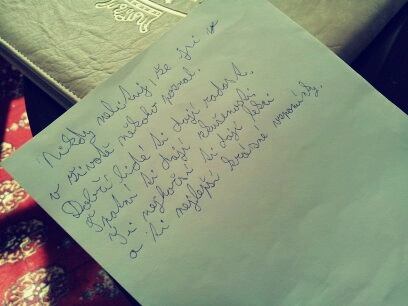 Nikdy nelituj, že jsi v
v životě někoho poznal.
Dobří lidé ti dají radost,
Špatní ti dají zkušenosti
Ti nejhorší ti dají lekci
a ti nejlepší krásné vzpomínky.